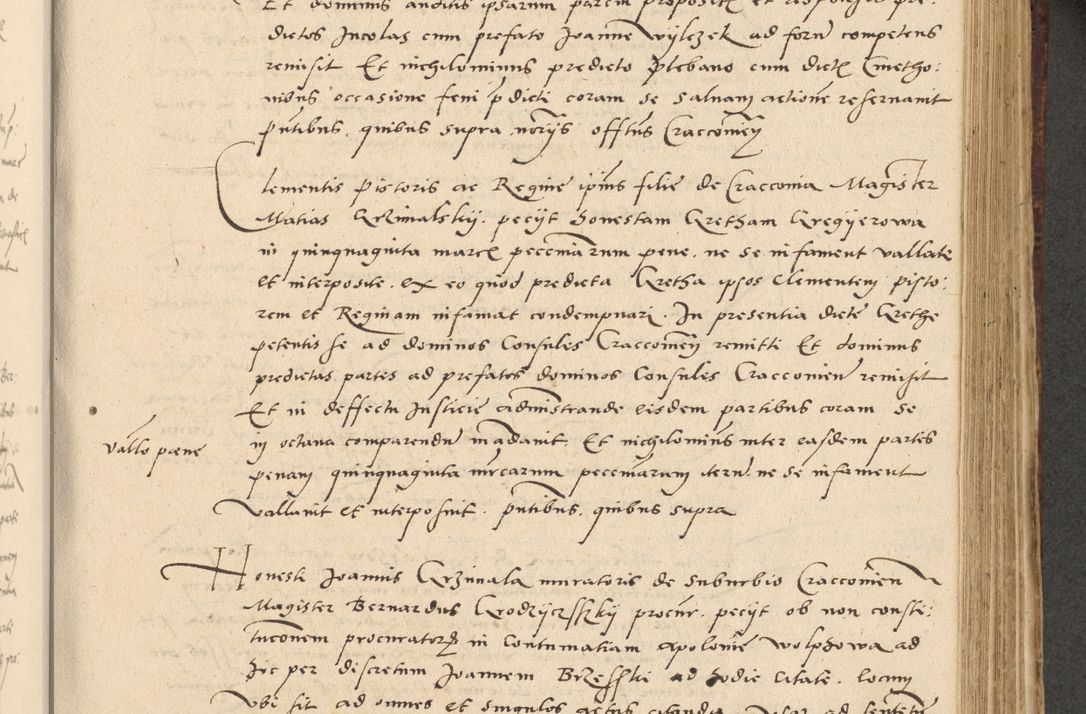 Et dominus auditis ipsarum partem
dictos Incolas cum prefato Joanne Wylczek ad forũ competens
remisit Et nichilominus predicto plebano cum dictꝭ Cmetho:
nibus occasione feni p̃dicti coram se saluam actionẽ reseruauit
p̃ntibus. quibus supra norijs offtus Cracconieñ
Clementis Pistoris ac Reginẽ ip̃ius filie de Cracconia Magister
Matias Grzimalskij. pecijt honestam Gretham Gregyerowa
in quinquaginta marcꝭ peccuniarum pene. ne se infament vallate
et interposite. ex eo quod predicta Gretha ipsos Clementem pisto:
rem et Reginam infamat condempnari. In presentia dicte Grethe
petentis se ad dominos Consules Cracconieñ remitti Et dominus
predictas partes ad prefatos dominos Consules Cracconieñ remisit
Et in deffectu Iusticie administrande eisdem partibus coram se
in octaua comparendũ mandauit. Et nichilominus inter easdem partes
vallo pœne
penam quinquaginta mrcarum peccuniarum iterũ ne se infament
vallauit et interposuit. p̃ntibus. quibus supra
Honesti Joannis Grzimala muratoris de suburbio Cracconieñ
Magister Bernardus Grodzyczsskÿ procur. pecijt ob non consti:
tucionem procuratorꝭ in contumatiam apolonie Wolphowa ad
hic per discretum Joannem Brzesskie ad hodie citate. locum
vbi sit ad omnes et singulos actus citandã